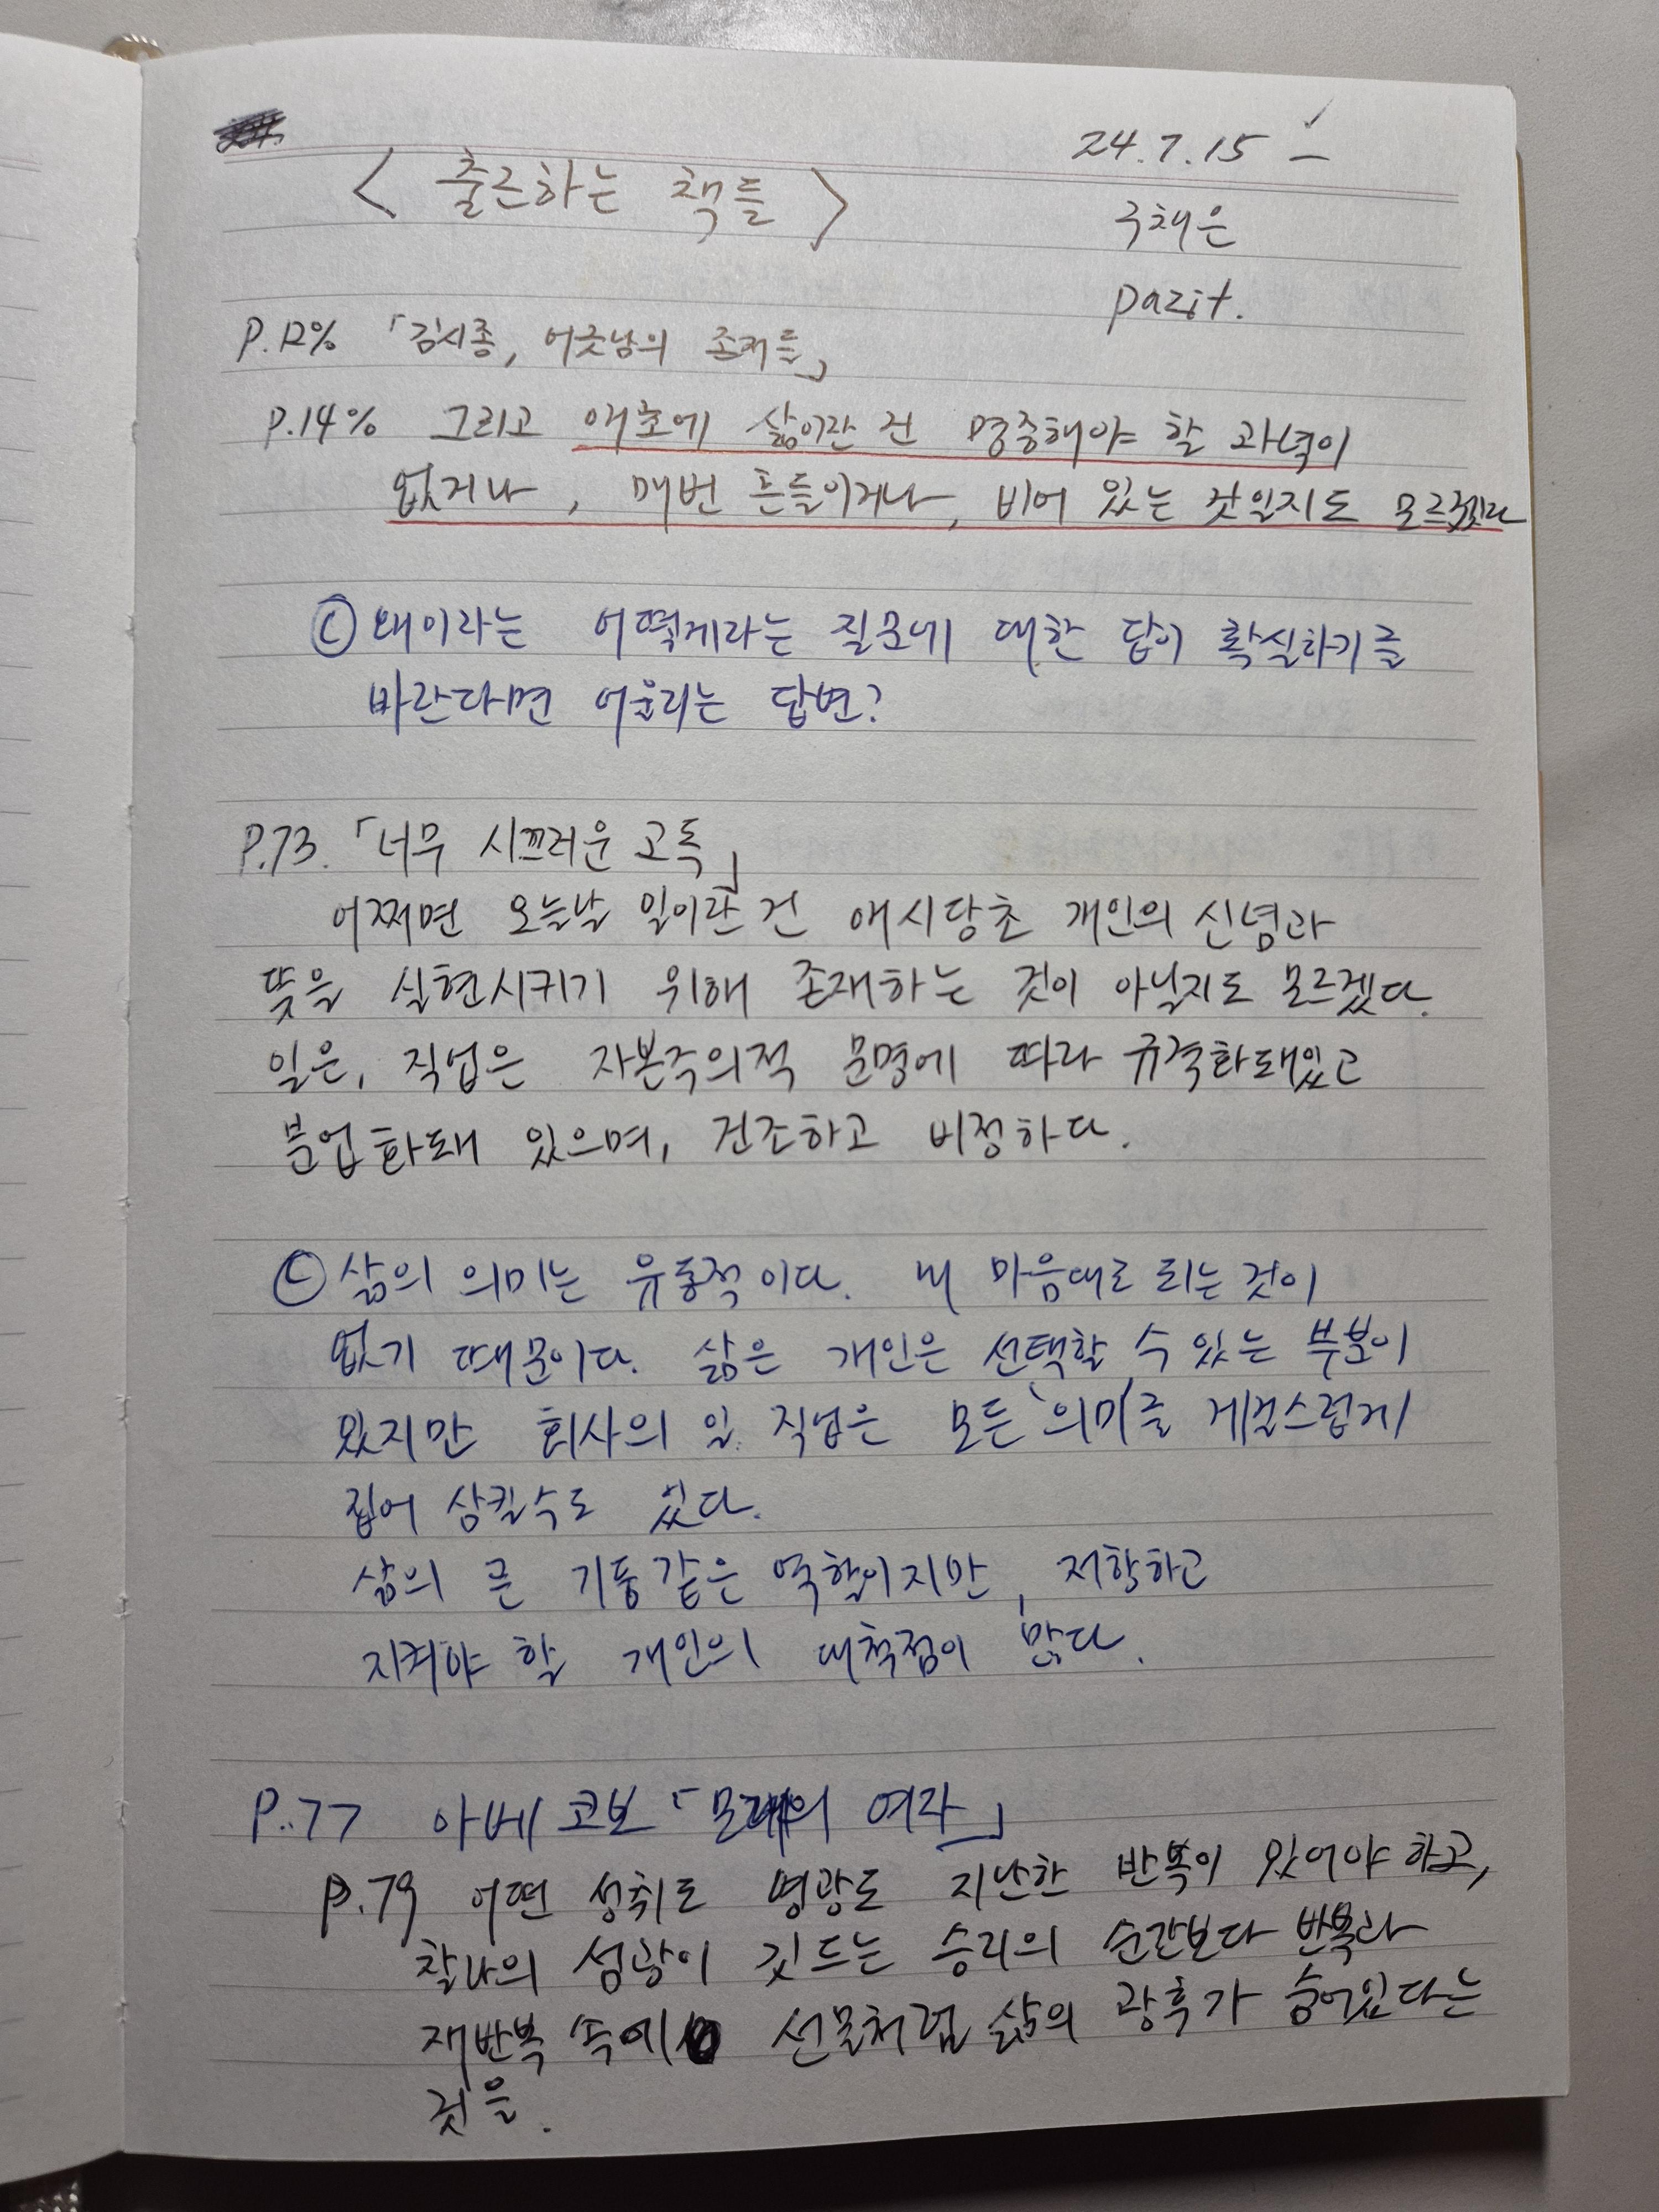 24.7.15 –
< 출근하는 책들 >
구채은
pazit.
P.12% 「김시종, 어긋남의 존재들」
P.14% 그리고 애초에 삶이란 건 명중해야 할 과녁이
없거나, 매번 흔들이거나, 비어 있는 것일지도 모르겠다
Ⓒ 왜이라는 어떻게라는 질문에 대한 답이 확실하기를
바란다면 어울리는 답변?
P.73. 「너무 시끄러운 고독」
어쩌면 오늘날 일이란 건 애시당초 개인의 신념과
뜻을 실현시키기 위해 존재하는 것이 아닐지도 모르겠다.
일은, 직업은 자본주의적 문명에 따라 규격화돼있고
분업화돼 있으며, 건조하고 비정하다.
Ⓒ 삶의 의미는 유동적이다. 내 마음대로 되는 것이
없기 때문이다. 삶은 개인은 선택할 수 있는 부분이
있지만 회사의 일, 직업은 모든 '의미'를 게걸스럽게
집어 삼킬수도 있다.
삶의 큰 기둥같은 역할이지만, 저항하고
지켜야 할 개인의 대척점이 많다.
P.77 아베 코보 「모래의 여자」
P.79 어떤 성취도 영광도 지난한 반복이 있어야 하고,
찰나의 섬광이 깃드는 승리의 순간보다 반복과
재반복 속에 선물처럼 삶의 광휴가 숨어있다는
것을.